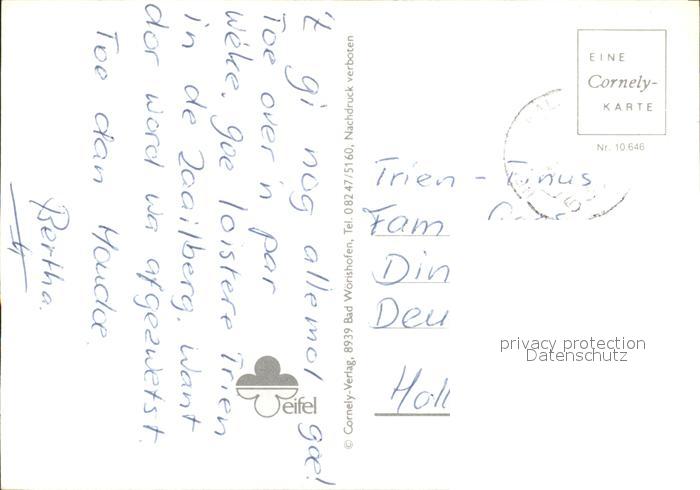 't gi nog allemol goe!
Toe over 'n par
wéke. goe loistere Trien
in de Zaailberg. want
dor word wa afgezwetst.
Toe dan Houdoe.
Bertha.
eifel
© Cornely-Verlag, 8939 Bad Wörishofen, Tel. 08247/5160, Nachdruck verboten
EINE
Cornely-
KARTE
Nr. 10.646
Trien - Tinus
Fam
Din
Deu
Holl
privacy protection
Datenschutz